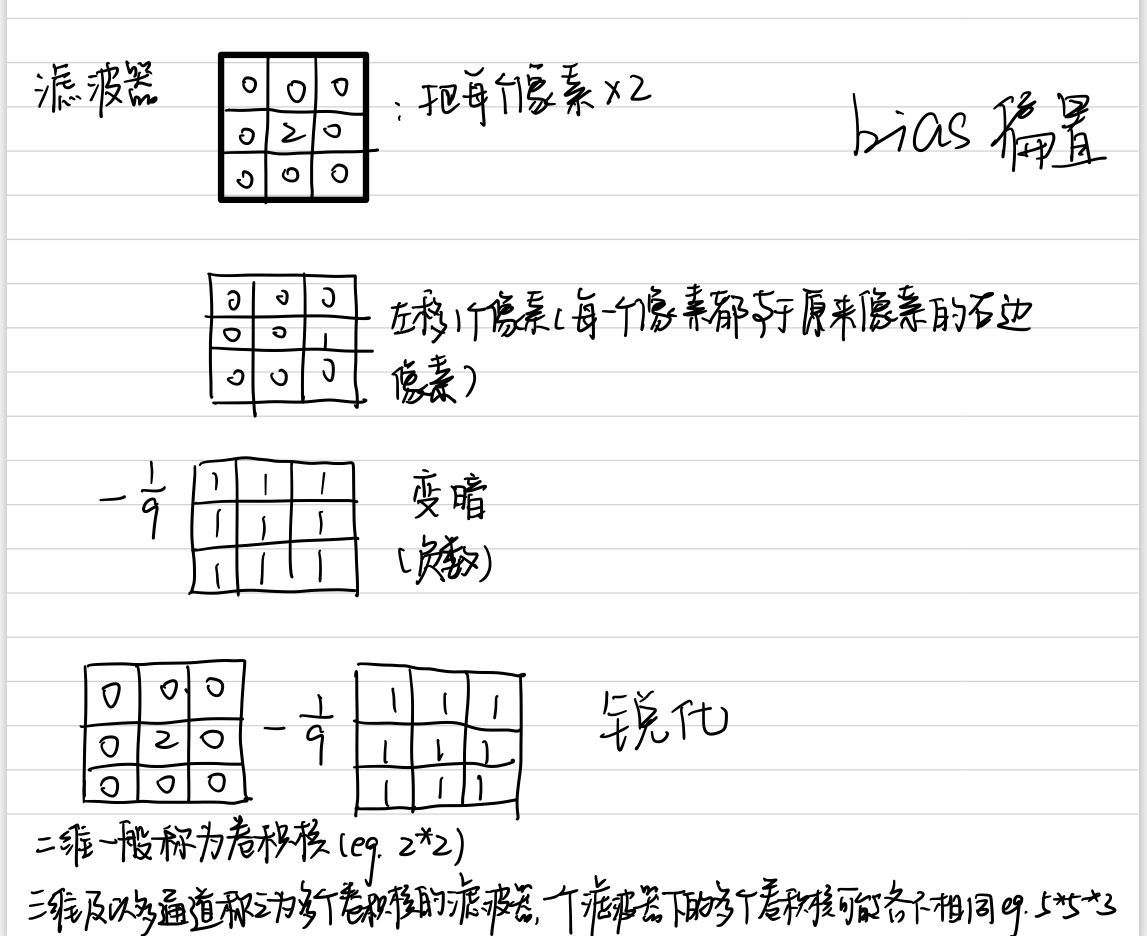 滤波器
0 0 0
0 2 0
0 0 0
:把每个像素×2
bias 偏置
0 0 0
0 0 1
0 0 0
左移1个像素(每一个像素都等于原来像素的右边
像素)
- 1/9
1 1 1
1 1 1
1 1 1
变暗
(负数)
0 0 0
0 2 0
0 0 0
- 1/9
1 1 1
1 1 1
1 1 1
锐化
二维一般称为卷积核(eg. 2*2)
三维及以多通道称之为多个卷积核的滤波器,一个滤波器下的多个卷积核可能各不相同eg. 5*5*3